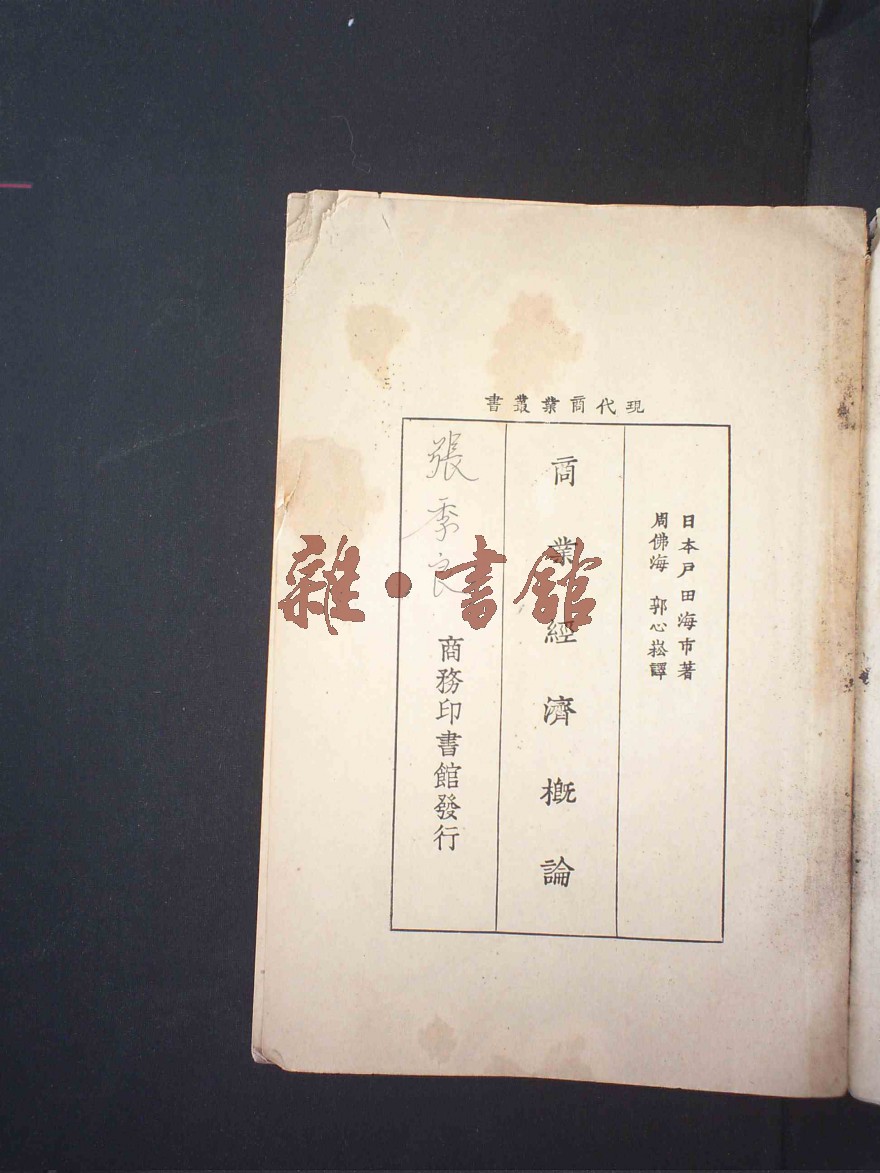 現代商業叢書
日本戸田海市著
周佛海 郭心崧譯
商業經濟概論
張季良
商務印書館發行
雜·書館